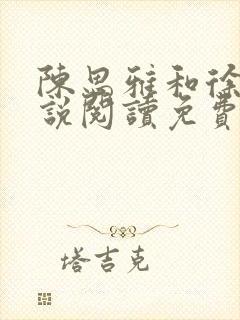 陳思雅和徐
說閱讀免費
塔吉克